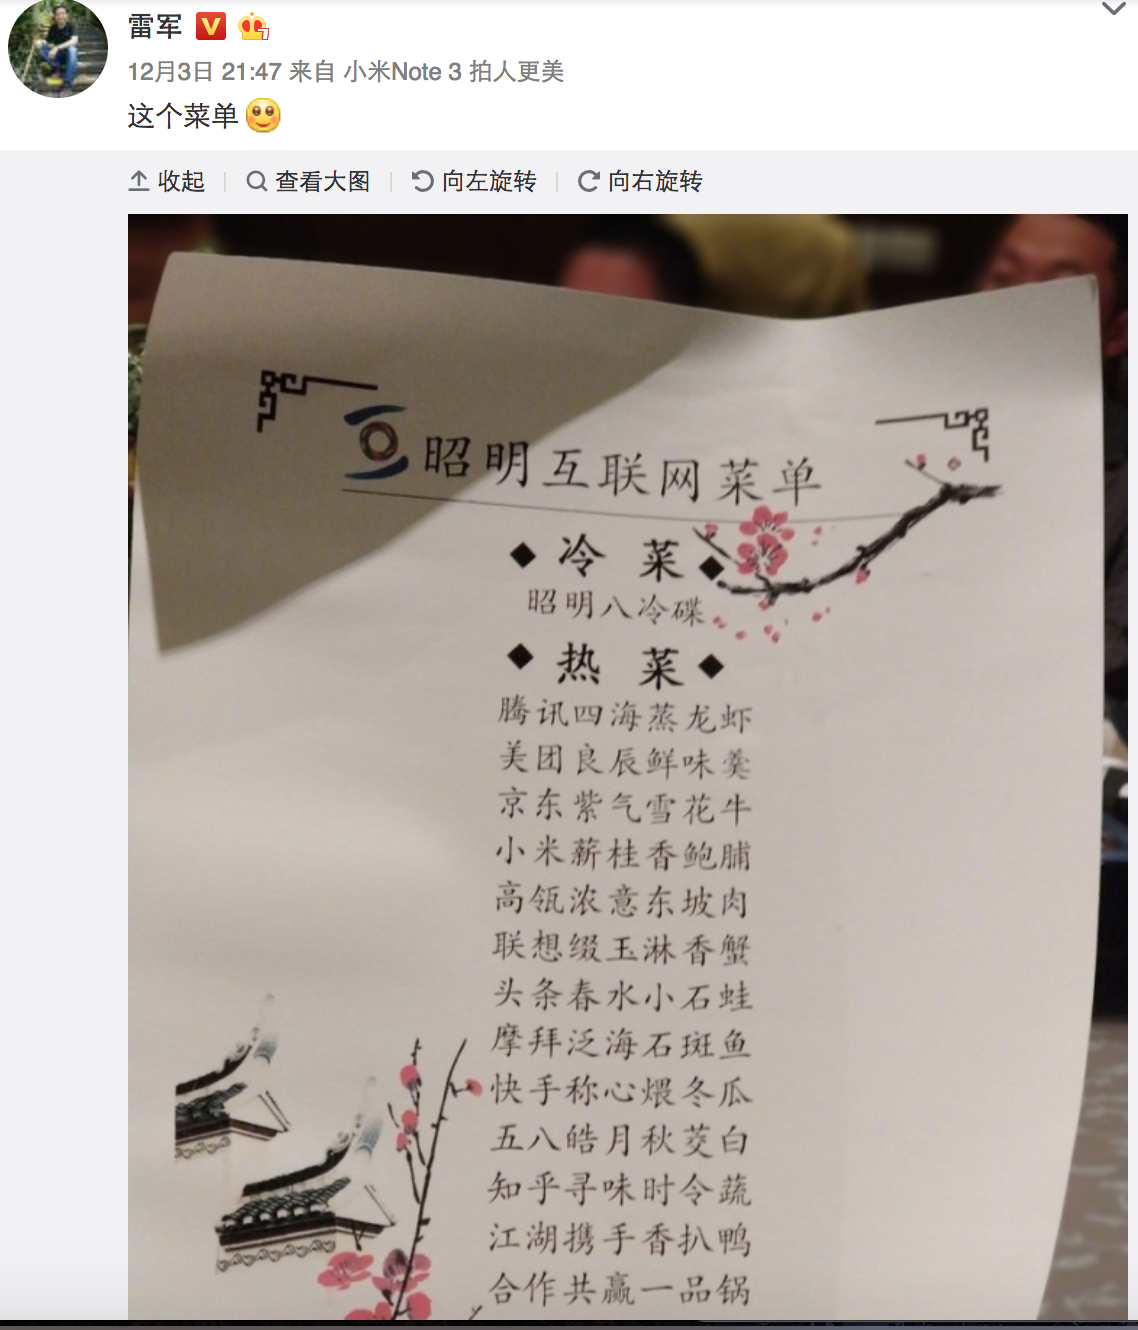 雷军
12月3日 21:47 来自 小米Note 3 拍人更美
这个菜单
收起 查看大图 向左旋转 向右旋转
昭明互联网菜单
冷 菜
昭明八冷碟
热 菜
腾讯四海蒸龙虾
美团良辰鲜味羹
京东紫气雪花牛
小米薪桂香鲍脯
高瓴浓意东坡肉
联想缀玉淋香蟹
头条春水小石蛙
摩拜泛海石斑鱼
快手称心煨冬瓜
五八皓月秋茭白
知乎寻味时令蔬
江湖携手香扒鸭
合作共赢一品锅